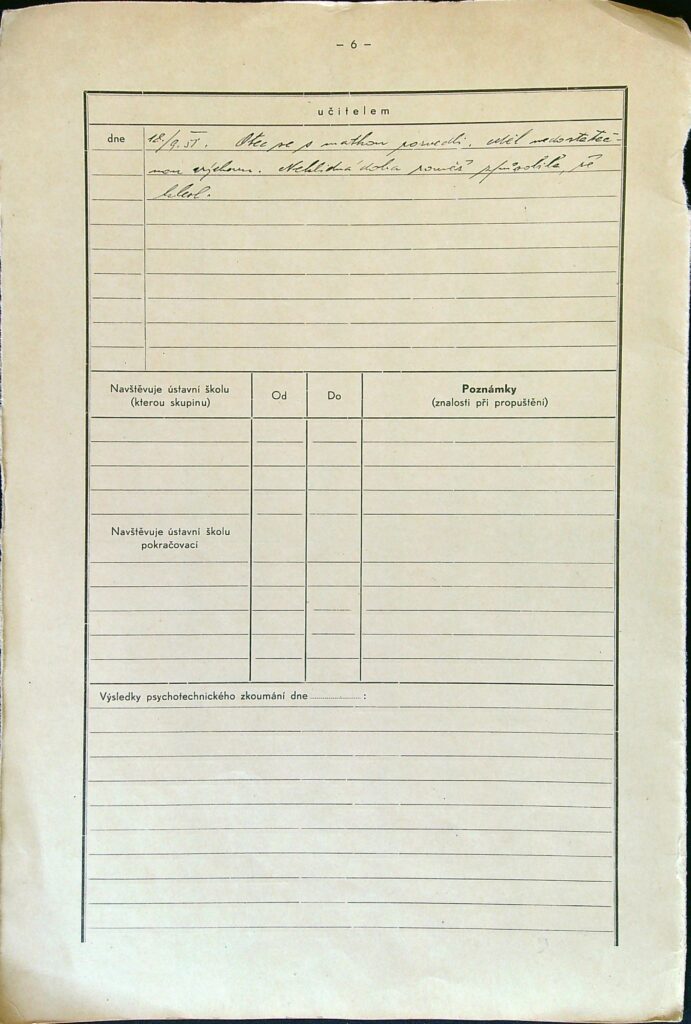 – 6 –
učitelem
dne 18/9. 51. Otec se s matkou rozvedli. Měl nedostateč-
nou výchovu. Neklidná doba rovněž způsobila, že
klesl.
Navštěvuje ústavní školu
(kterou skupinu)
Od
Do
Poznámky
(znalosti při propuštění)
Navštěvuje ústavní školu
pokračovací
Výsledky psychotechnického zkoumání dne .................... :